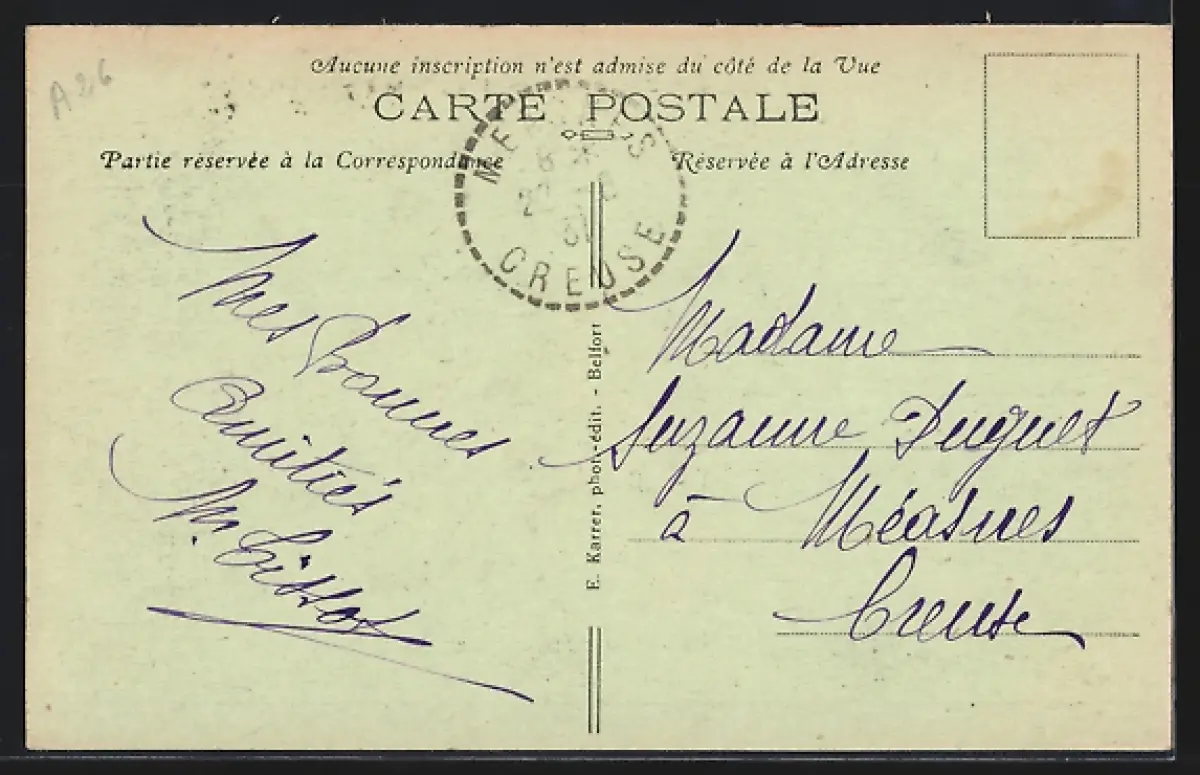 A26
Aucune inscription n'est admise du côté de la Vue
CARTE POSTALE
Partie réservée à la Correspondance
Réservée à l'Adresse
CREUSE
Mes Bonnes
Amitiés
M. Tissot
E. Karrer, phot.-édit. - Belfort
Madame
Suzanne Duguet
à Méasnes
Creuse